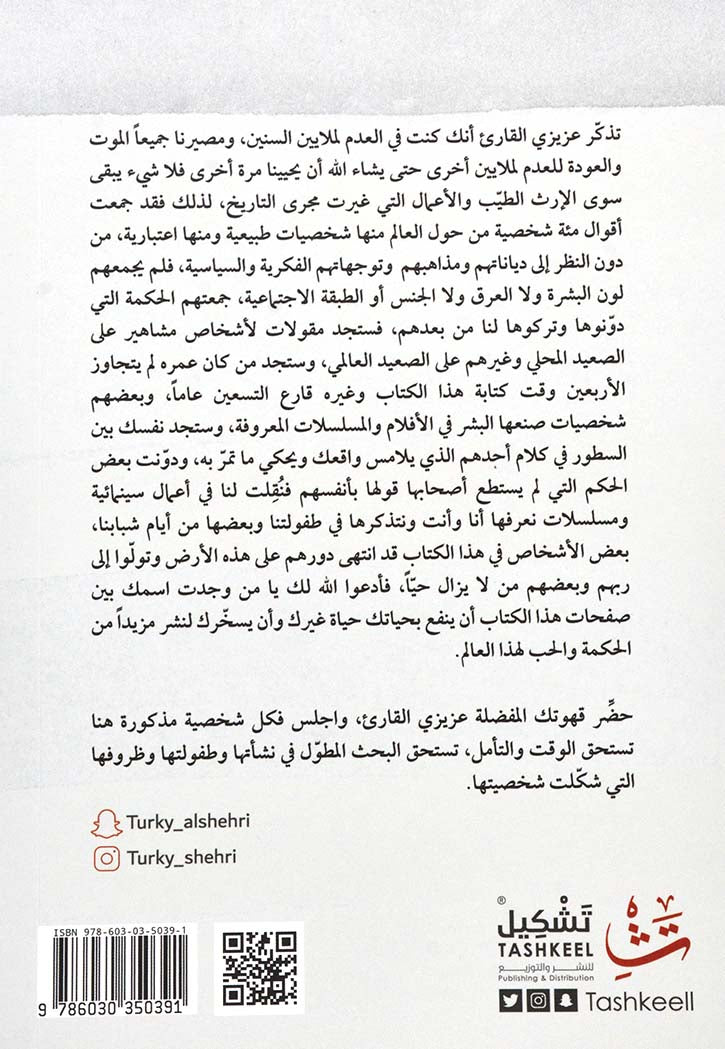 تذكّر عزيزي القارئ أنك كنت في العدم لملايين السنين، ومصيرنا جميعاً الموت
والعودة للعدم لملايين أخرى حتى يشاء الله أن يحيينا مرة أخرى فلا شيء يبقى
سوى الإرث الطيّب والأعمال التي غيرت مجرى التاريخ، لذلك فقد جمعت
أقوال مئة شخصية من حول العالم منها شخصيات طبيعية ومنها اعتبارية، من
دون النظر إلى دياناتهم ومذاهبهم وتوجهاتهم الفكرية والسياسية، فلم يجمعهم
لون البشرة ولا العرق ولا الجنس أو الطبقة الاجتماعية، جمعتهم الحكمة التي
دوّنوها وتركوها لنا من بعدهم، فستجد مقولات لأشخاص مشاهير على
الصعيد المحلي وغيرهم على الصعيد العالمي، وستجد من كان عمره لم يتجاوز
الأربعين وقت كتابة هذا الكتاب وغيره قارع التسعين عاماً، وبعضهم
شخصيات صنعها البشر في الأفلام والمسلسلات المعروفة، وستجد نفسك بين
السطور في كلام أحدهم الذي يلامس واقعك ويحكي ما تمرّ به، ودوّنت بعض
الحكم التي لم يستطع أصحابها قولها بأنفسهم فنُقِلت لنا في أعمال سينمائية
ومسلسلات نعرفها أنا وأنت ونتذكرها في طفولتنا وبعضها من أيام شبابنا،
بعض الأشخاص في هذا الكتاب قد انتهى دورهم على هذه الأرض وتولّوا إلى
ربهم وبعضهم من لا يزال حيّاً، فأدعوا الله لك يا من وجدت اسمك بين
صفحات هذا الكتاب أن ينفع بحياتك حياة غيرك وأن يسخّرك لنشر مزيداً من
الحكمة والحب لهذا العالم.
حضِّر قهوتك المفضلة عزيزي القارئ، واجلس فكل شخصية مذكورة هنا
تستحق الوقت والتأمل، تستحق البحث المطوّل في نشأتها وطفولتها وظروفها
التي شكّلت شخصيتها.
Turky_alshehri
Turky_shehri
ISBN 978-603-03-5039-1
9 786030 350391
تَشْكِيل®
TASHKEEL
للنشر والتوزيع
Publishing & Distribution
Tashkeell